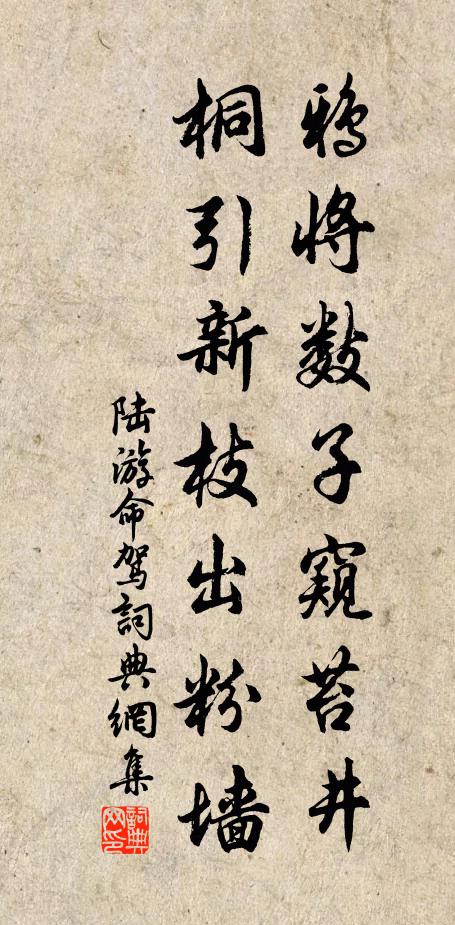 鸦将数子窥苔井
桐引新枝出粉墙
陆游命驾詞典網集
詞典网印